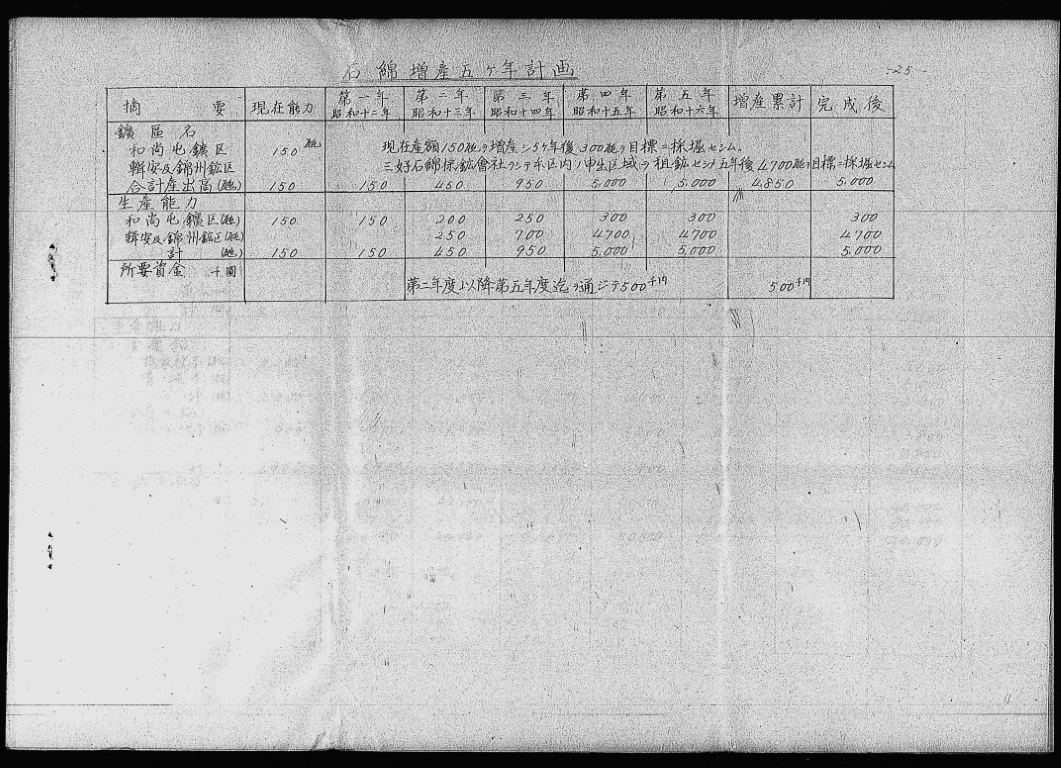 石綿増産五ヶ年計画
-25-
摘要 現在能力 第一年 昭和十二年 第二年 昭和十三年 第三年 昭和十四年 第四年 昭和十五年 第五年 昭和十六年 増産累計 完成後
鑛區名
和尚屯鑛区 150瓲 現在産額150瓲ヲ増産シ5ヶ年後300瓲ヲ目標ニ採堀センム。
輯安及錦州鉱区 三好石綿採鉱會社ヲシテ本区内ノ中生区域ヲ租鉱セシメ五年後4700瓲ヲ目標ニ採堀センム
合計産出高(瓲) 150 150 450 950 5,000 5,000 4,850 5,000
生産能力
和尚屯鑛区(瓲) 150 150 200 250 300 300 300
輯安及錦州鉱区(瓲) 250 700 4700 4700 4700
計(瓲) 150 150 450 950 5,000 5,000 5,000
所要資金 千圓
第二年度以降第五年度迄ヲ通ジテ500千円 500千円